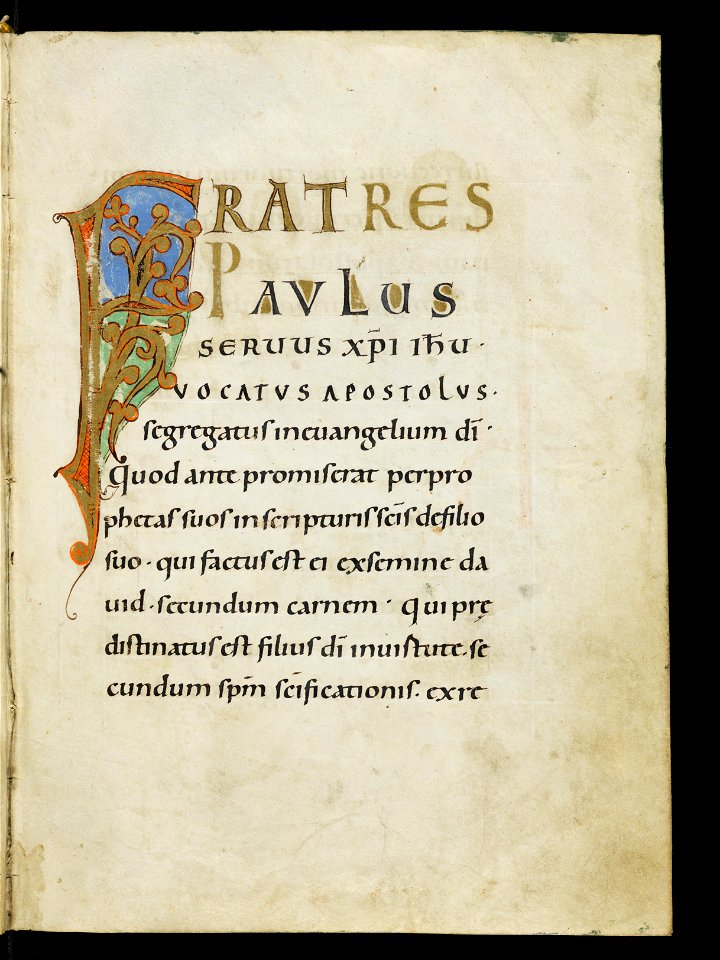 FRATRES
PAVLUS
SERUUS XP̄I IH̄U·
VOCATVS APOSTOLVS·
segregatus in euangelium dī·
Quod ante promiserat per pro
phetas suos in scripturis sc̄is de filio
suo· qui factus est ei ex semine da
uid· secundum carnem· Qui prę
distinatus est filius dī in uirtute· se
cundum sp̄m sc̄ificationis· ex re